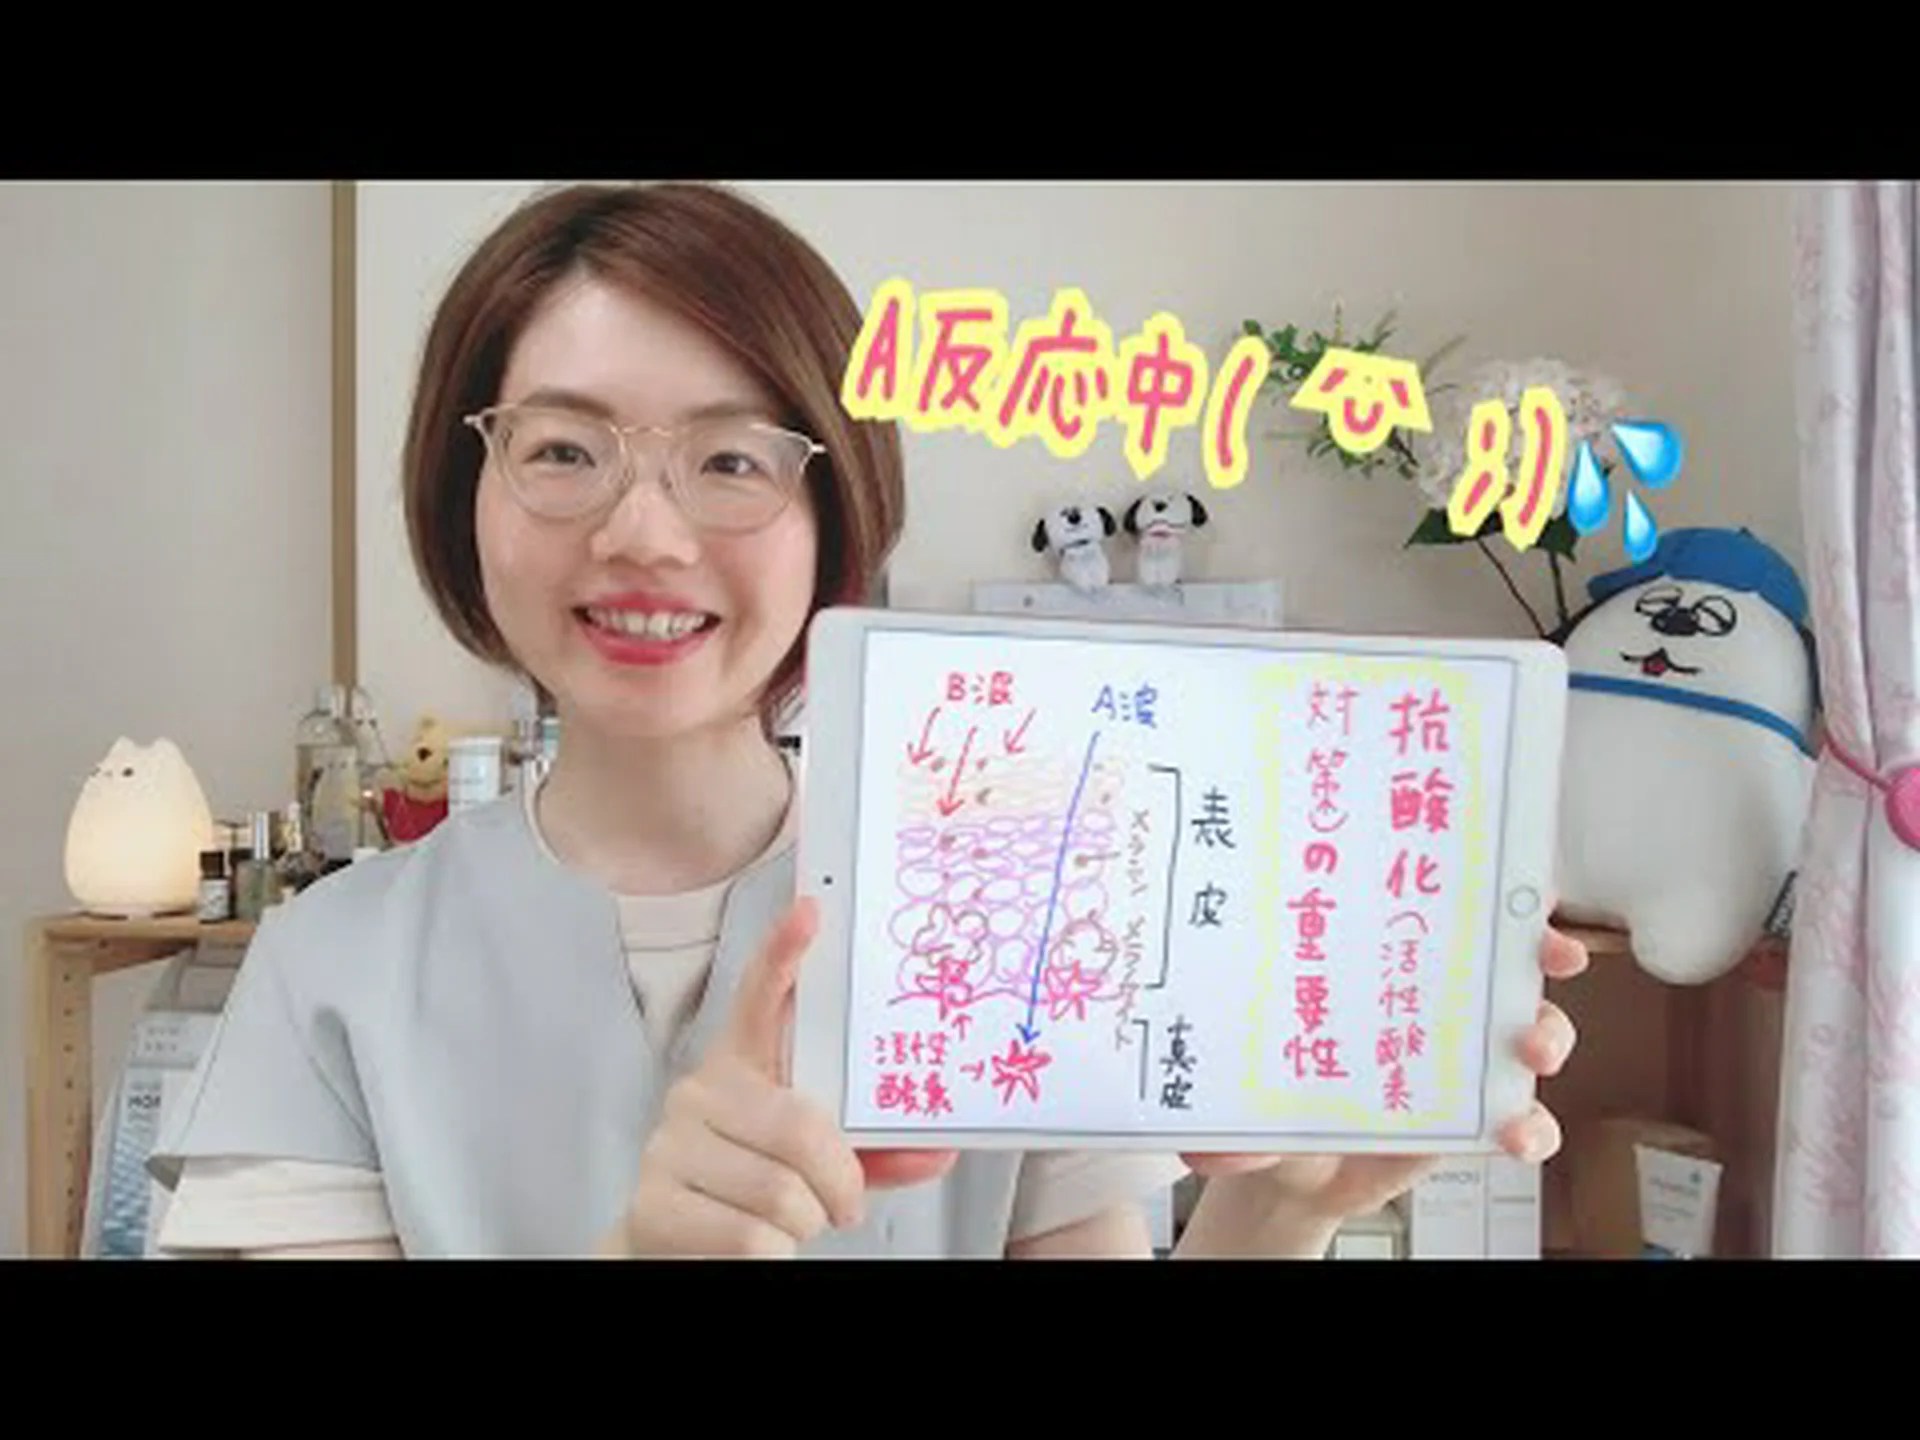 A反応中( ;)
抗酸化(活性酸素
対策)の重要性
B波
A波
表皮
メラニン
メラノサイト
真皮
活性
酸素